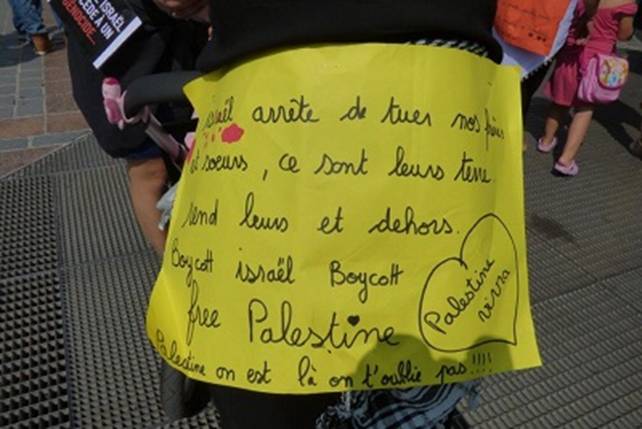 ISRAËL
CÈDE À UN
GÉNOCIDE...
israël arrête de tuer nos frères
et soeurs, ce sont leurs terre
rend leurs et dehors.
Boycott israël Boycott
free Palestine
Palestine vivra
Palestine on est là on t'oublie pas !!!!